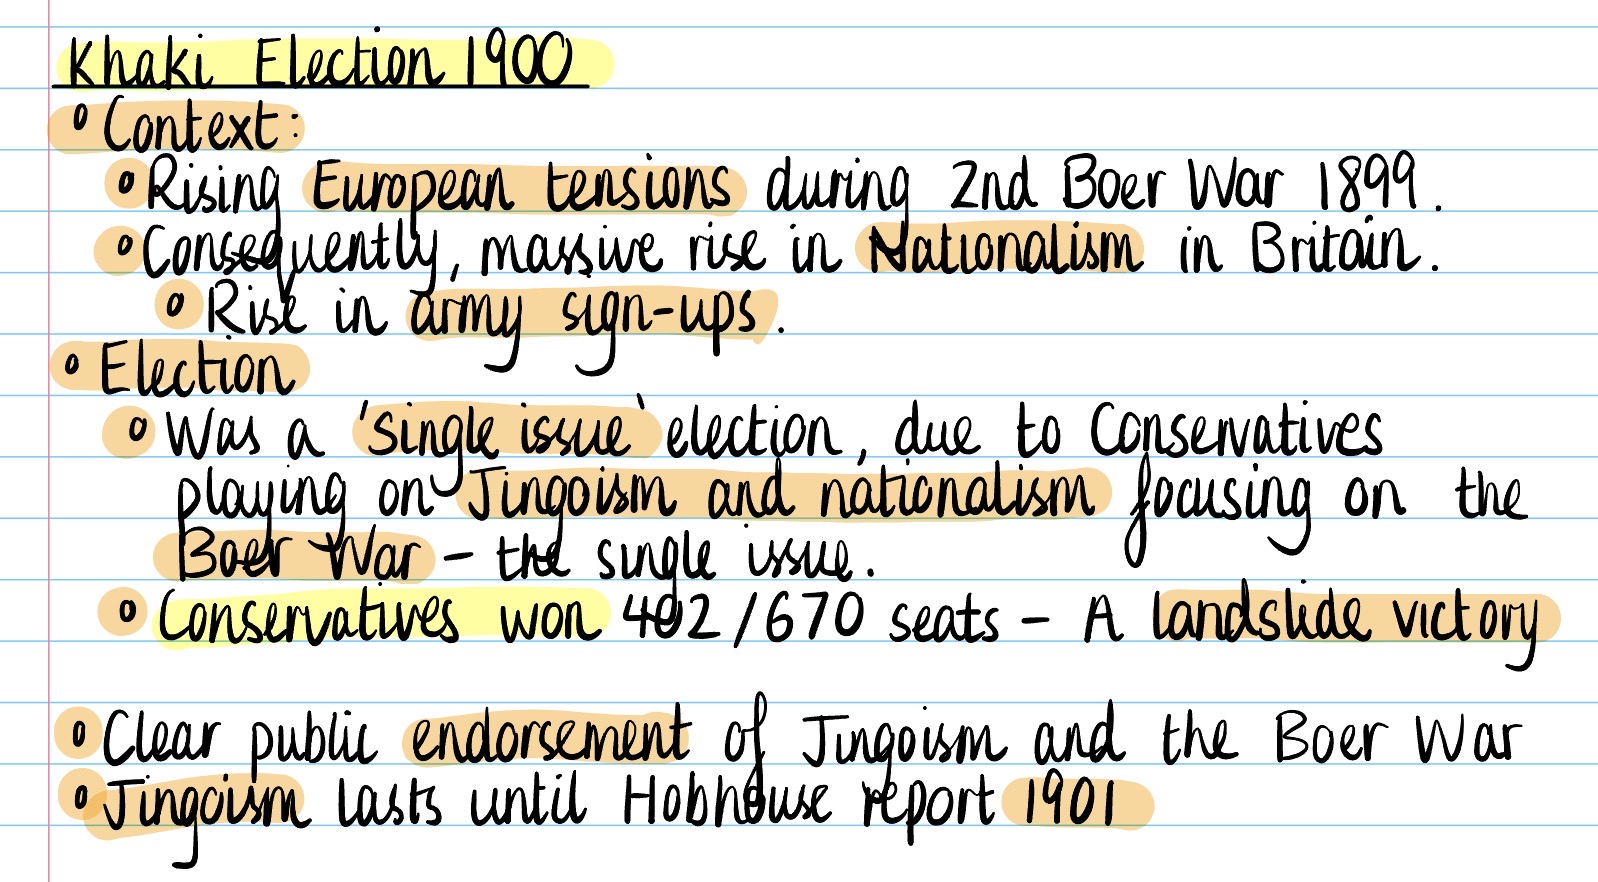 Khaki Election 1900
Context:
Rising European tensions during 2nd Boer War 1899.
Consequently, massive rise in Nationalism in Britain.
Rise in army sign-ups.
Election
Was a 'single issue' election, due to Conservatives
playing on Jingoism and nationalism focusing on the
Boer War – the single issue.
Conservatives won 402/670 seats – A landslide victory
Clear public endorsement of Jingoism and the Boer War
Jingoism lasts until Hobhouse report 1901